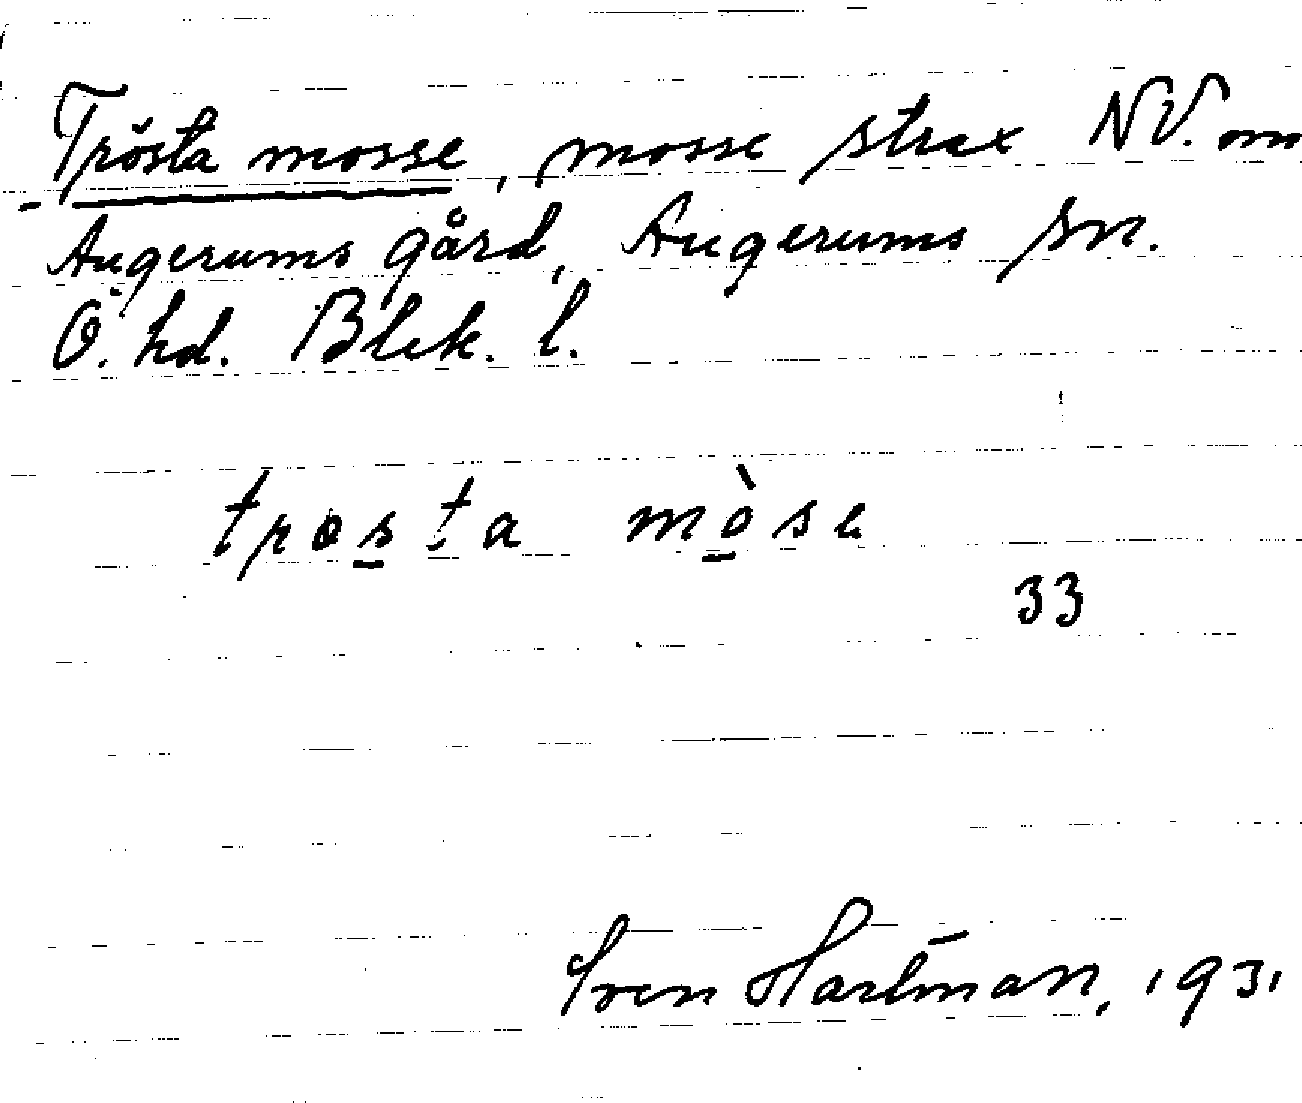 Trösta mosse, mosse strax NV. om
Augerums gård, Augerums sn.
Ö. hd. Blek. l.
trosta mòse
33
Sven Hartman, 1931